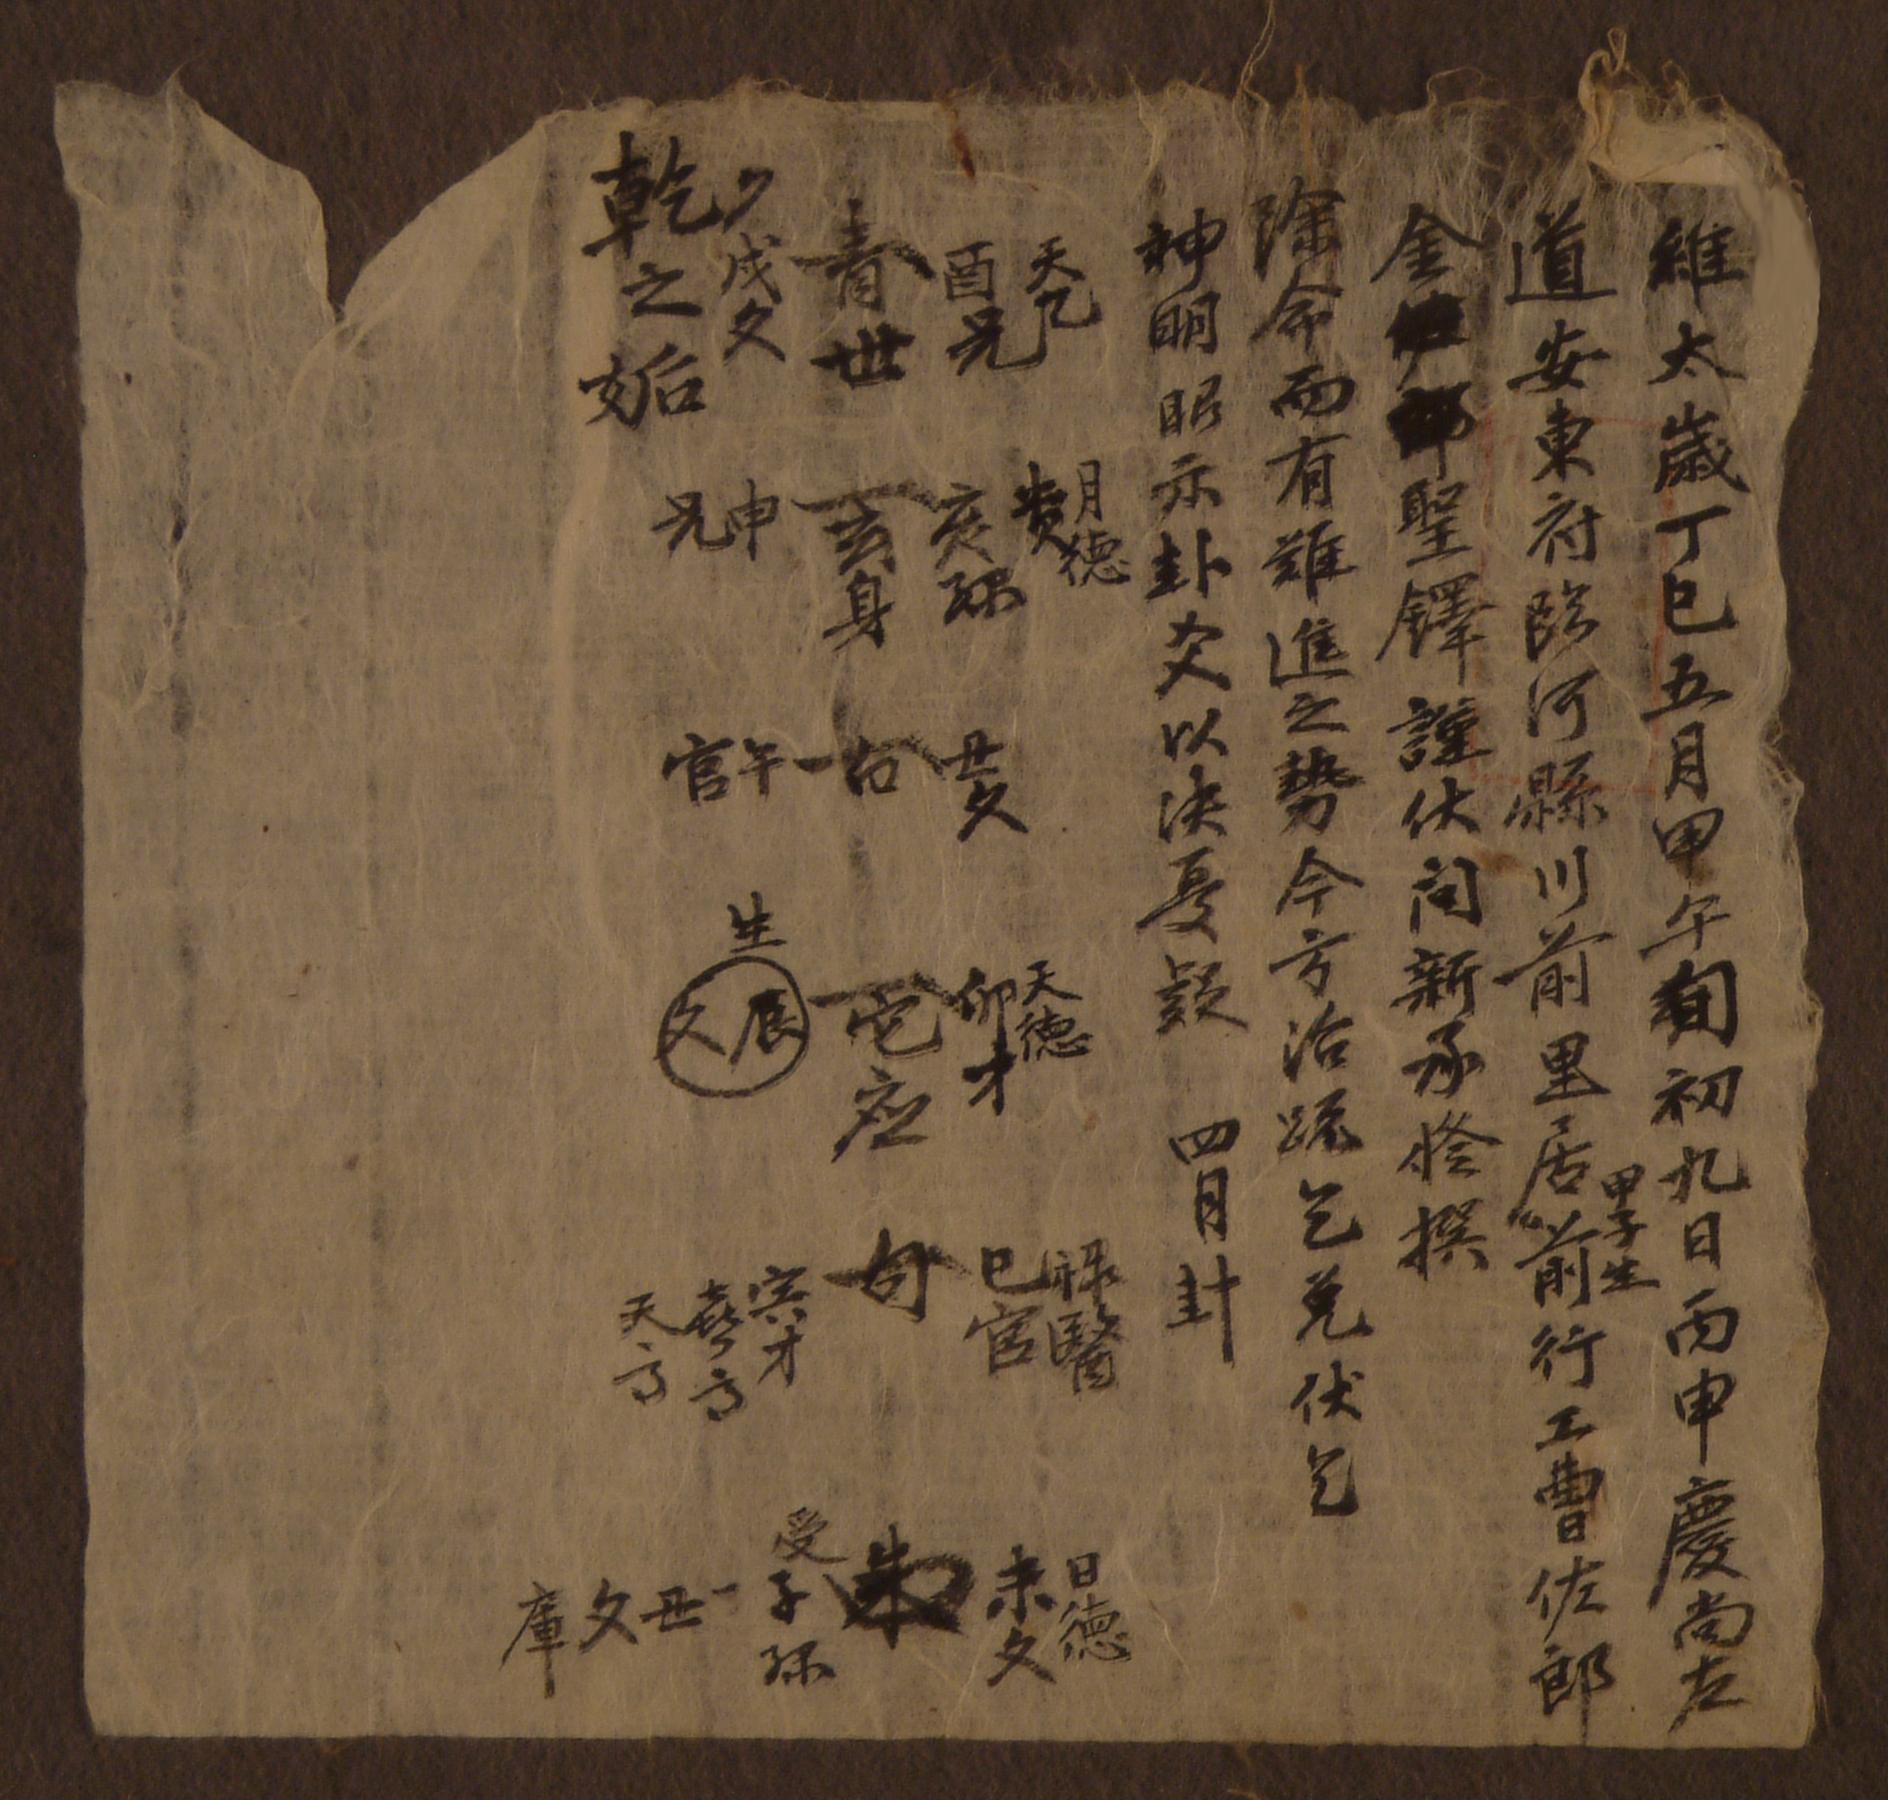 維太歲丁巳五月甲午朔初九日丙申慶尚左
道安東府臨河縣川前里居前行工曹佐郎
甲子生
金聖鐸謹伏問新承 撰
除命而有難進之勢今方治疏乞免伏乞
神明昭示卦爻以決憂疑 四月卦
天乙 月德 貴 天德 祿 醫 日德
酉兄 亥孫 丑父 卯才 巳官 未父
青世 玄身 白 宅應 句 朱
戌父 申兄 午官 生 辰父 寅才 喜 受 子孫 一丑父庫
乾之姤